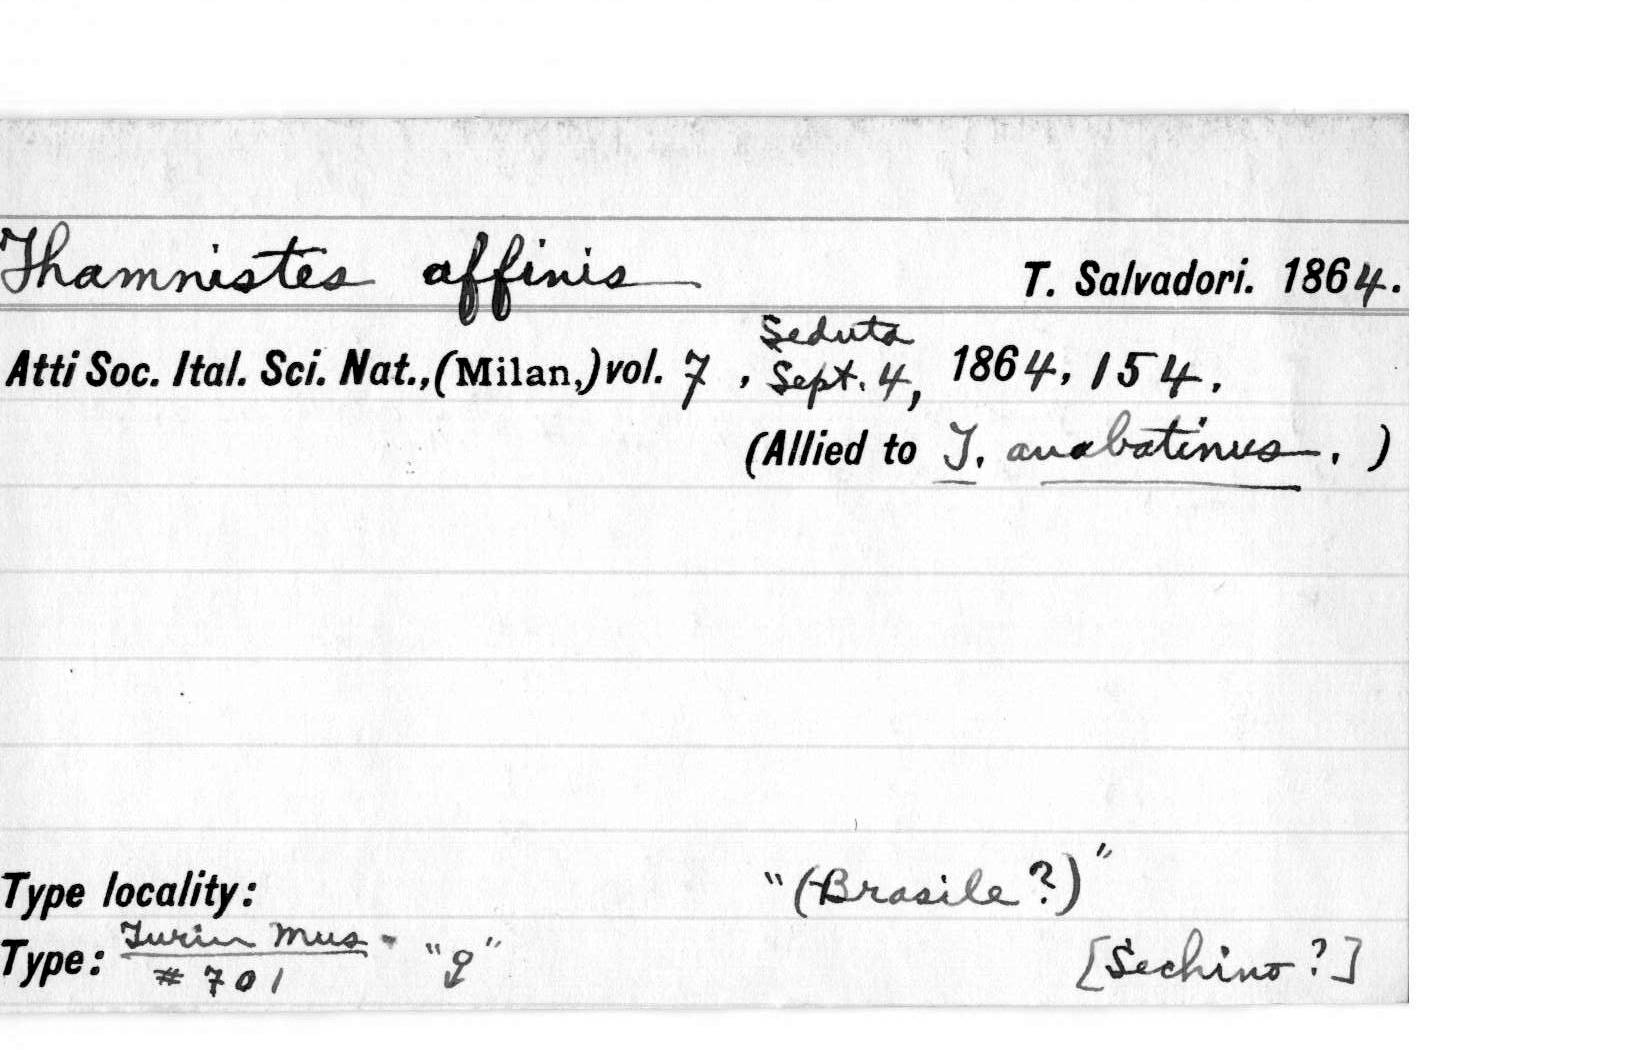 Thamnistes affinis T. Salvadori. 1864.
Seduta
Atti Soc. Ital. Sci. Nat., (Milan,) vol. 7, Sept. 4, 1864, 154.
(Allied to T. anabatinus. )
Type locality: "(Brasile?)"
Turin Mus -
Type: # 701 "♀" [Sechino?]